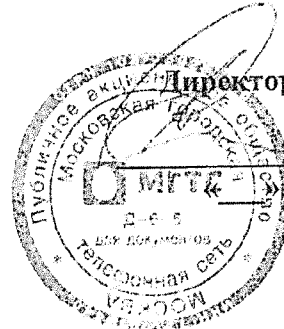 Директор
Публичное акционерное общество
Московская городская
телефонная сеть
МГТС
«    »
для документов
МОСКВА